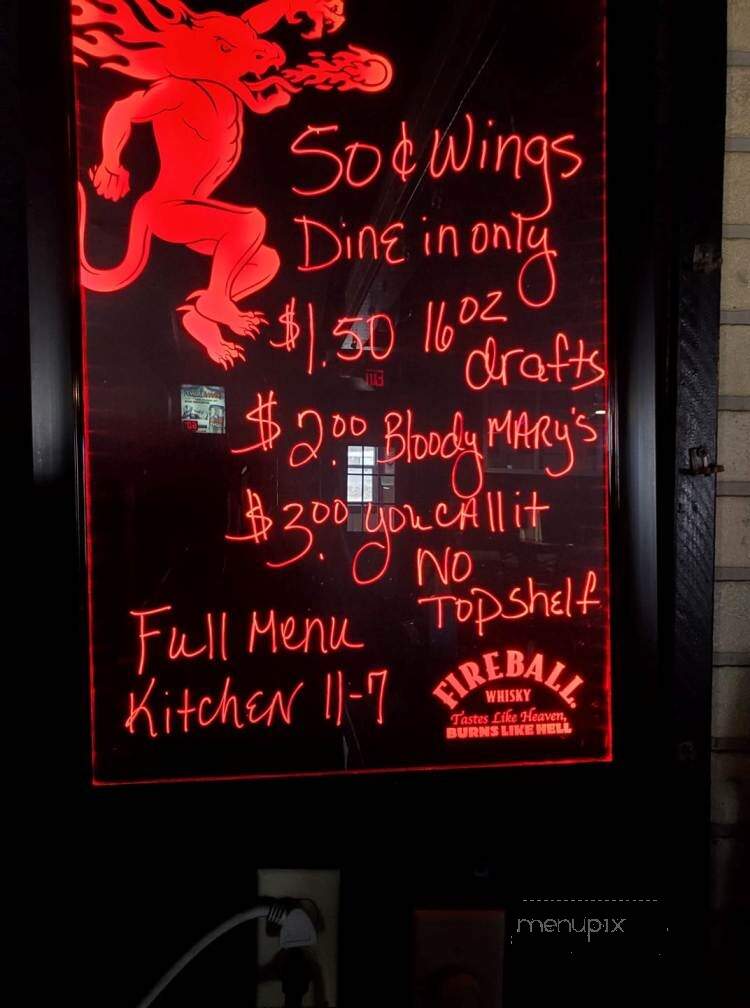 50¢ Wings
Dine in only
$1.50 16oz
drafts
$2.00 Bloody MARy's
$3.00 you cAll it
NO
TOPshelf
Full Menu
KitcheN 11-7
FIREBALL
WHISKY
Tastes Like Heaven,
BURNS LIKE HELL
menupix